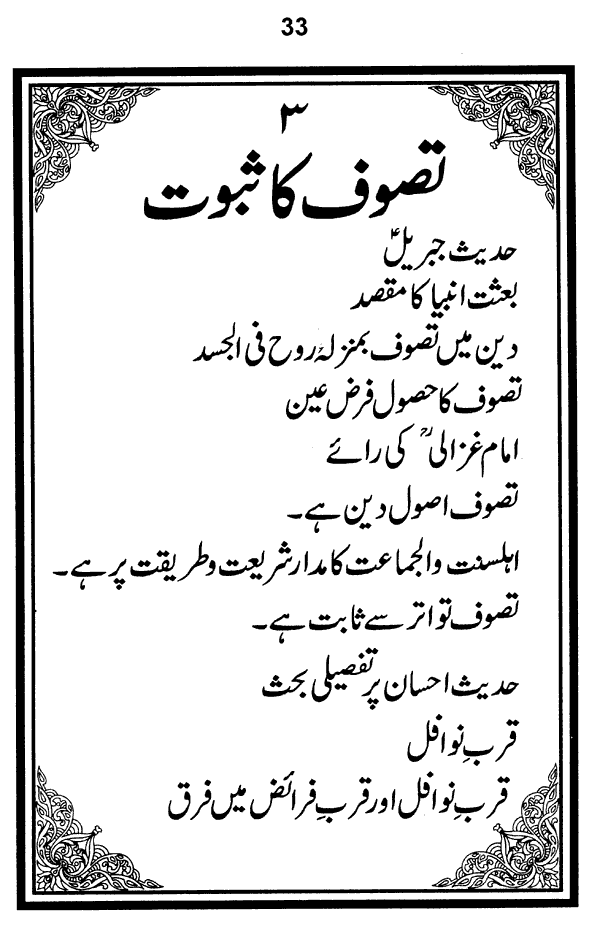 33
۳
تصوف کا ثبوت
حدیث جبریلؑ
بعثت انبیا کا مقصد
دین میں تصوف بمنزلہٴ روح فی الجسد
تصوف کا حصول فرض عین
امام غزالیؒ کی رائے
تصوف اصول دین ہے۔
اہلسنت والجماعت کا مدار شریعت و طریقت پر ہے۔
تصوف تواتر سے ثابت ہے۔
حدیث احسان پر تفصیلی بحث
قربِ نوافل
قربِ نوافل اور قربِ فرائض میں فرق